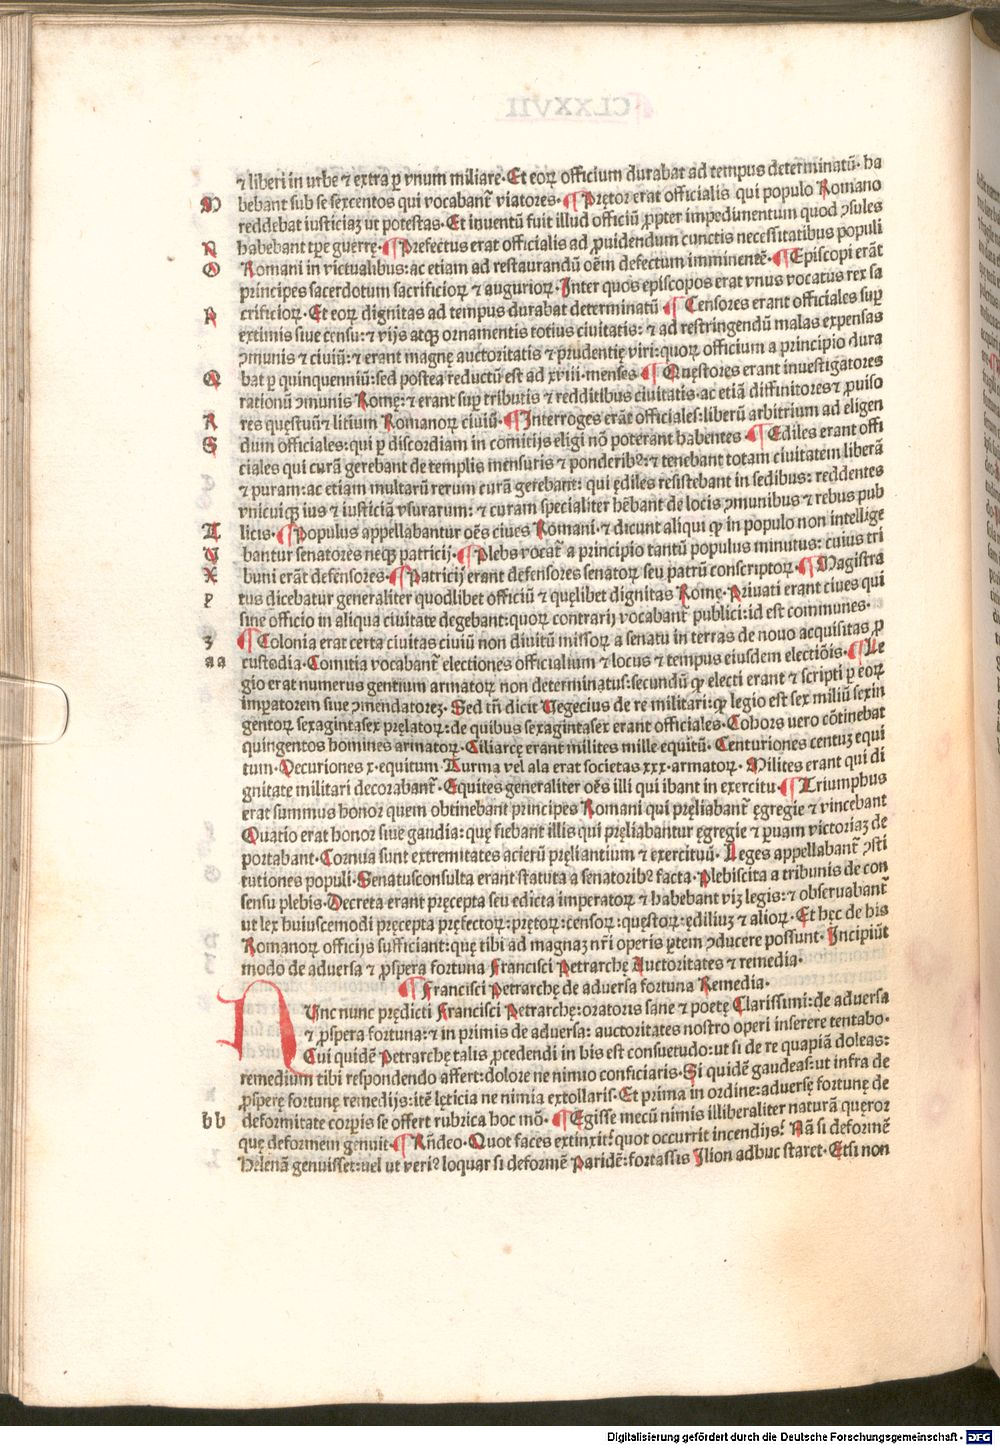 ⁊ liberi in urbe ⁊ extra ꝑ vnum miliare. Et eoꝝ officium durabat ad tempus determinatū. ha
M bebant sub se sexcentos qui vocabant᷑ viatores. ¶ Prętor erat officialis qui populo Romano
reddebat iusticiaꝫ ut potestas. Et inuentū fuit illud officiū ꝓpter impedimentum quod ꝯsules
N habebant tꝑe guerrę. ¶ Prefectus erat officialis ad ꝓuidendum cunctis necessitatibus populi
O Romani in victualibus: ac etiam ad restaurandū oēm defectum imminentē. ¶ Episcopi erāt
principes sacerdotum sacrificioꝝ ⁊ augurioꝝ. Inter quos episcopos erat vnus vocatus rex sa
P crificioꝝ. Et eoꝝ dignitas ad tempus durabat determinatū ¶ Censores erant officiales suꝑ
extimis siue censu: ⁊ vijs atqꝫ ornamentis totius ciuitatis: ⁊ ad restringendū malas expensas
ꝯmunis ⁊ ciuiū: ⁊ erant magnę auctoritatis ⁊ prudentię viri: quoꝝ officium a principio dura
Q bat ꝑ quinquenniū: sed postea reductū est ad xviii. menses ¶ Quęstores erant inuestigatores
rationū ꝯmunis Romę: ⁊ erant suꝑ tributis ⁊ redditibus ciuitatis. ac etiā diffinitores ⁊ ꝓuiso
R res quęstuū ⁊ litium Romanoꝝ ciuiū. ¶ Interroges erāt officiales: liberū arbitrium ad eligen
S dum officiales: qui ꝑ discordiam in comitijs eligi nō poterant habentes. ¶ Ediles erant offi
ciales qui curā gerebant de templis mensuris ⁊ ponderibꝰ: ⁊ tenebant totam ciuitatem liberā
⁊ puram: ac etiam multarū rerum curā gerebant: qui ędiles resistebant in sedibus: reddentes
vnicuiqꝫ ius ⁊ iusticiā vsurarum: ⁊ curam specialiter hēbant de locis ꝯmunibus ⁊ rebus pub
T licis. ¶ Populus appellabantur oēs ciues Romani. ⁊ dicunt aliqui ꝙ in populo non intellige
V bantur senatores neqꝫ patricij. ¶ Plebs vocat᷑ a principio tantū populus minutus: cuius tri
X buni erāt defensores. ¶ Patricij erant defensores senatoꝝ seu patrū conscriptoꝝ. ¶ Magistra
y tus dicebatur generaliter quodlibet officiū ⁊ quęlibet dignitas Romę. Priuati erant ciues qui
sine officio in aliqua ciuitate degebant: quoꝝ contrarij vocabant᷑ publici: id est communes.
z ¶ Colonia erat certa ciuitas ciuiū non diuitū missoꝝ a senatu in terras de nouo acquisitas ꝓ
aa custodia. Comitia vocabant᷑ electiones officialium ⁊ locus ⁊ tempus eiusdem electiōis. ¶ Le
gio erat numerus gentium armatoꝝ non determinatus: secundū ꝙ electi erant ⁊ scripti ꝑ eoꝝ
imꝑatorem siue ꝯmendatoreꝫ. Sed tn̄ dicit Vegecius de re militari: ꝙ legio est sex miliū sexin
gentoꝝ sexagintasex pręlatoꝝ: de quibus sexagintasex erant officiales. Cohors uero cōtinebat
quingentos homines armatoꝝ. Ciliarcę erant milites mille equitū. Centuriones centuꝫ equi
tum. Decuriones x. equitum Turma vel ala erat societas xxx. armatoꝝ. Milites erant qui di
gnitate militari decorabant᷑. Equites generaliter oēs illi qui ibant in exercitu. ¶ Triumphus
erat summus honor quem obtinebant principes Romani qui pręliabant᷑ ęgregie ⁊ vincebant
Ouatio erat honor siue gaudia: quę fiebant illis qui pręliabantur ęgregie ⁊ ꝑuam victoriaꝫ de
portabant. Cornua sunt extremitates acierū pręliantium ⁊ exercituū. Leges appellabant᷑ ꝯsti
tutiones populi. Senatusconsulta erant statuta a senatoribꝰ facta. Plebiscita a tribunis de con
sensu plebis. Decreta erant pręcepta seu edicta imperatoꝝ ⁊ habebant viꝫ legis: ⁊ obseruabant᷑
ut lex huiuscemodi pręcepta pręfectoꝝ: prętoꝝ: censoꝝ: quęstoꝝ: ędiliuꝫ ⁊ alioꝝ. Et hęc de his
Romanoꝝ officijs sufficiant: quę tibi ad magnaꝫ nr̄i operis ꝑtem ꝯducere possunt. Incipiūt
modo de aduersa ⁊ ꝓspera fortuna Francisci Petrarchę Auctoritates ⁊ remedia.
¶ Francisci Petrarchę de aduersa fortuna Remedia.
NUnc nunc prędicti Francisci Petrarchę: oratoris sane ⁊ poetę Clarissimi: de aduersa
⁊ ꝓspera fortuna: ⁊ in primis de aduersa: auctoritates nostro operi inserere tentabo.
Cui quidē Petrarchę talis ꝓcedendi in his est consuetudo: ut si de re quapiā doleas:
remedium tibi respondendo affert: dolore ne nimio conficiaris. Si quidē gaudeas: ut infra de
ꝓsperę fortunę remedijs: itē lęticia ne nimia extollaris. Et prima in ordine: aduersę fortunę de
bb deformitate corꝑis se offert rubrica hoc mō. ¶ Egisse mecū nimis illiberaliter naturā quęror
quę deformem genuit. ¶ Rn̄deo. Quot faces extinxit: quot occurrit incendijs: Nā si deformē
Helenā genuisset: uel ut veriꝰ loquar si deformē Paridē: fortassis Ilion adhuc staret. Etsi non
Digitalisierung gefördert durch die Deutsche Forschungsgemeinschaft - DFG